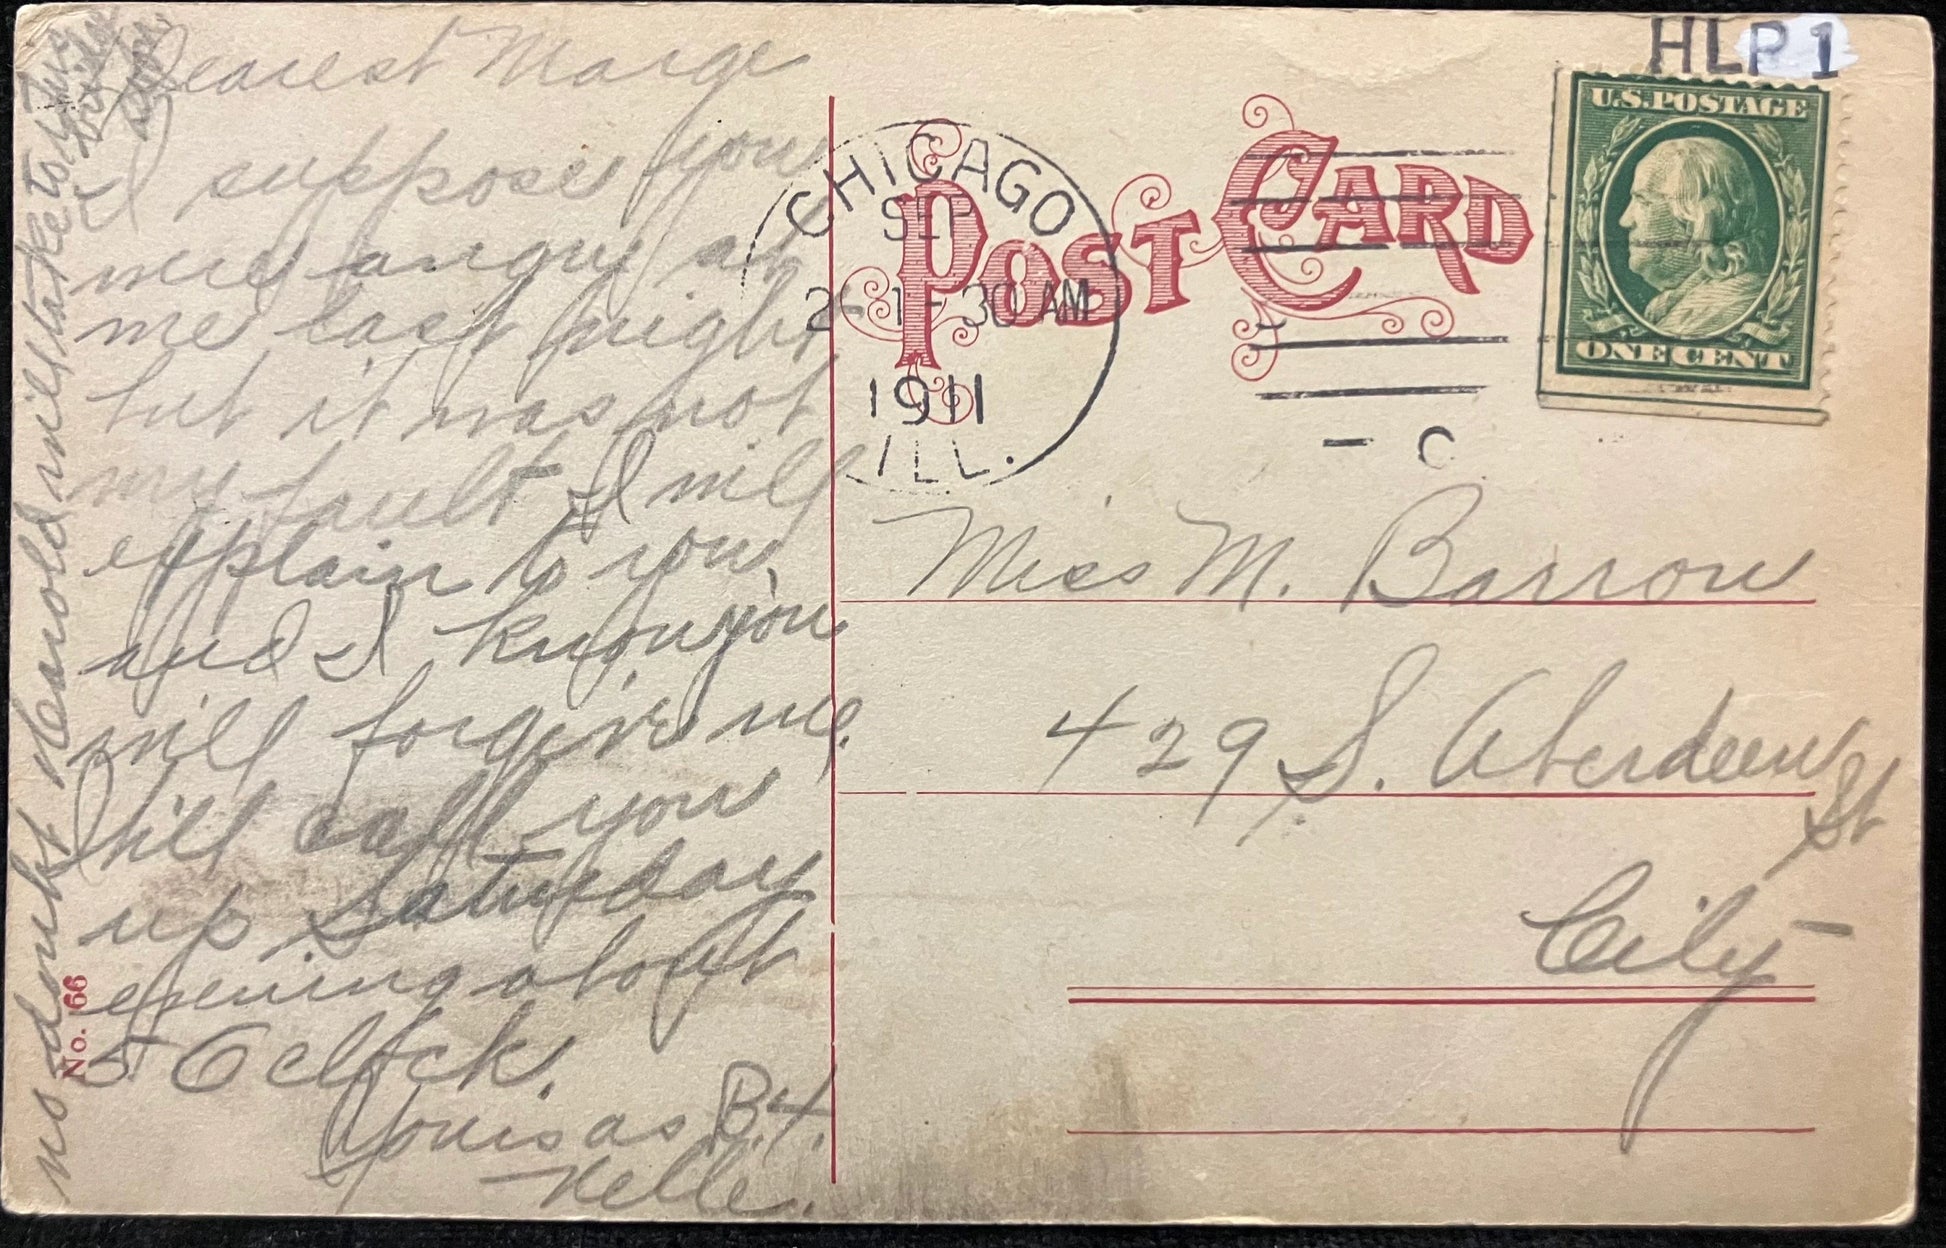 Dearest Marge
I suppose you
were angry at
me last night
but it was not
my fault I will
explain to you
and I know you
will forgive me.
Will call you
up Saturday
evening about
5 O clock.
Yours as B.4.
Nelle.
no doubt Harold will take to
soon.
No. 166
HLP 1
U.S. POSTAGE
ONE CENT
POST CARD
CHICAGO
SEP
1-30 AM
1911
ILL.
Miss M. Barrow
429 S. Aberdeen
St
City